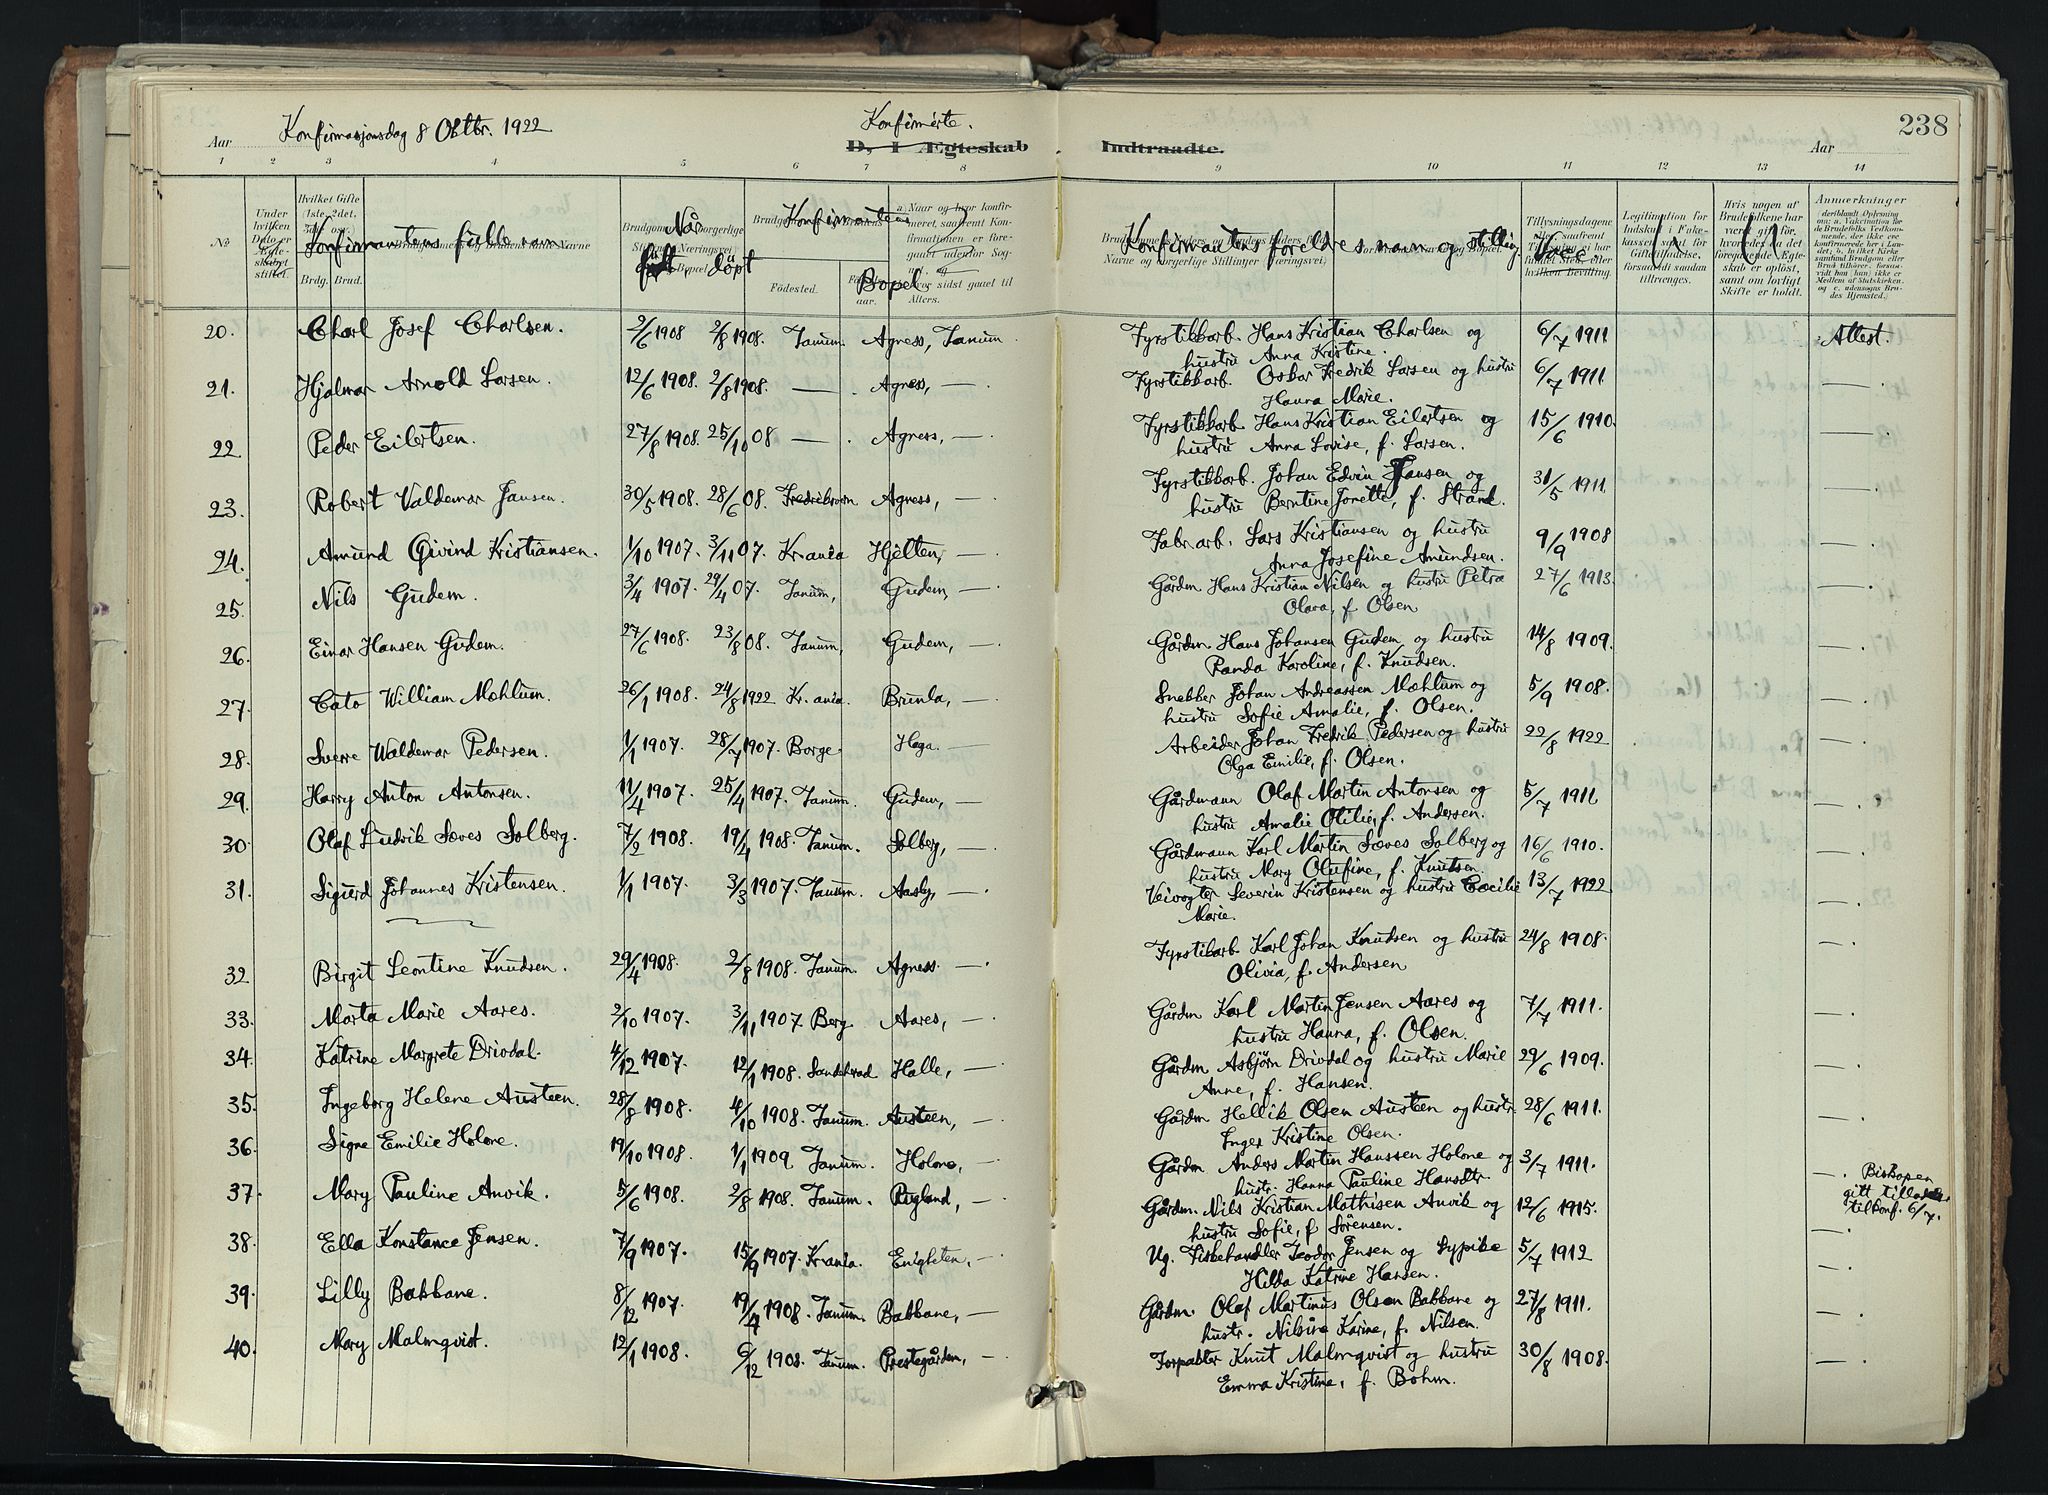 Konfirmasjonsdag 8 Oktbr. 1922
Konfirmérte.
238
Aar
D, i Ægteskab Indtraadte.
Aar
1 2 3 4 5 6 7 8 9 10 11 12 13 14
No
Under hvilken Dato er Ægteskabet stiftet.
Hvilket Gifte (1ste, 2det, 3die osv.)
Brdg. Brud.
Konfirmantens fulle navn
Når
født u døpt
Konfirmantens
Fødested.
Bopel.
Naar og hvor konfirmeret, saafremt Konfirmationen er foregaaet udenfor Sognet,
Konfirmantens foreldres navn og stilling.
Vacc.
Tillysningsdagene eller, saafremt
hvilken Bevilling.
Legitimation for Indskud i Enkekassen samt for Giftetilladelse, forsaavidt saadan tiltrænges.
Hvis nogen af Brudefolkene har været gift før, hvorledes da det foregaaende Ægteskab er opløst, samt om lovligt Skifte er holdt.
Anmærkninger
20. Charl Josef Charlsen. 2/6 1908 2/8 1908. Tanum. Agness, Tanum. Fyrstikkarb. Hans Kristian Charlsen og 6/7 1911 Attest.
hustru Anna Kristine.
21. Hjalmar Arnold Larsen. 12/6 1908. 2/8 1908. — . Agness, — Fyrstikkarb. Oskar Fredrik Larsen og hustru 6/7 1911. — .
Hanna Marie.
22 Peder Eilertsen. 27/8 1908. 25/10 08 — . Agness, — . Fyrstikkarb. Hans Kristian Eilertsen og 15/6 1910. — .
hustru Anna Lovise, f. Larsen.
23. Robert Valdemar Jansen. 30/5 1908. 28/6 08. Fredriksvern Agness, — Fyrstikkarb. Johan Edvin Jansen og 31/5 1911. — .
hustru Berntine Jonette, f. Strand.
24. Amund Øivind Kristiansen. 1/10 1907. 3/11 07. Kr.ania Hjelten, — Fabr.arb. Lars Kristiansen og hustru 9/9 1908 — .
Anna Josefine Amundsen.
25. Nils Gudem. 3/4 1907. 29/4 07. Tanum, Gudem, — Gårdm Hans Kristian Nilsen og hustru Petra 27/6 1913. — .
Olava, f. Olsen
26. Einar Hansen Gudem. 27/6 1908. 23/8 08. Tanum, Gudem, — . Gårdm. Hans Johansen Gudem og hustru 14/8 1909. — .
Randa Karoline, f. Knudsen.
27. Cato William Mæhlum. 26/1 1908. 24/8 1922 Kr.ania. Brunla, — . Snekker Johan Andreassen Mæhlum og 5/9 1908. — .
hustru Sofie Amalie, f. Olsen.
28. Sverre Waldemar Pedersen. 1/1 1907. 28/7 1907. Borge. Hega. — Arbeider Johan Fredrik Pedersen og hustru 22/8 1922 — .
Olga Emilie, f. Olsen.
29. Harry Anton Antonsen. 11/4 1907. 25/4 1907. Tanum. Gudem, — Gårdmann Olaf Martin Antonsen og 5/7 1911 — .
hustru Amalie Otilie, f. Andersen.
30. Olaf Ludvik Sæves Solberg. 7/2 1908. 19/4 1908. Tanum. Solberg, — . Gårdmann Karl Martin Sæves Solberg og 16/6 1910. — .
hustru Mary Olufine, f. Knutsen.
31. Sigurd Johannes Kristensen. 1/1 1907. 3/3 1907. Tanum. Aasly, — . Veivogter Severin Kristensen og hustru Cæcilie 13/7 1922 — .
Marie.
32 Birgit Leontine Knudsen. 29/4 1908. 2/8 1908. Tanum. Agness. — . Fyrstikarb. Karl Johan Knudsen og hustru 24/8 1908. — .
Olivia, f. Andersen
33. Marta Marie Aares. 2/10 1907. 3/11 1907. Berg Aares, — . Gårdm Karl Martin Jensen Aares og 7/7 1911. — .
hustru Hanna, f. Olsen.
34. Katrine Margrete Drivdal. 4/12 1907. 12/1 1908. Sandeherad Halle, — . Gårdm Asbjørn Drivdal og hustru Marie 29/6 1909. — .
Anne, f. Hansen.
35. Ingeborg Helene Austeen. 28/8 1908. 4/10 1908. Tanum. Austeen, — . Gårdm Hellik Olsen Austeen og hustr. 28/6 1911. — .
Inger Kristine Olsen.
36. Signe Emilie Holone. 19/10 1908. 1/1 1909 Tanum. Holone, — . Gårdm Anders Martin Hanssen Holone og 3/7 1911. — . Biskopen
hustr. Hanna Pauline Hansdtr. gitt tilladelse
37. Mary Pauline Anvik. 5/6 1908. 2/8 1908. Tanum. Rugland, — Gårdm. Nils Kristian Mathisen Anvik og 12/6 1915. til konf. 6/7.
hustru Sofie, f Sørensen. — .
38. Ella Konstance Jensen. 7/9 1907. 15/9 1907. Kr.ania. Enigheten, — Ug. Fiskehandler Teodor Jensen og 5/7 1912 — .
Hilda Katrine Hansen.
39. Lilly Bakkane. 8/12 1907. 19/4 1908. Tanum. Bakkane, — Gårdm. Olaf Martinus Olsen Bakkane og 27/8 1911. — .
hustr. Nilsine Karine, f. Nilsen.
40. Mary Malmqvist. 12/1 1908. 6/12 1908. Tanum. Prestegården, — . Forpakter Knut Malmqvist og hustru 30/8 1908. — .
Emma Kristine, f. Bohm.